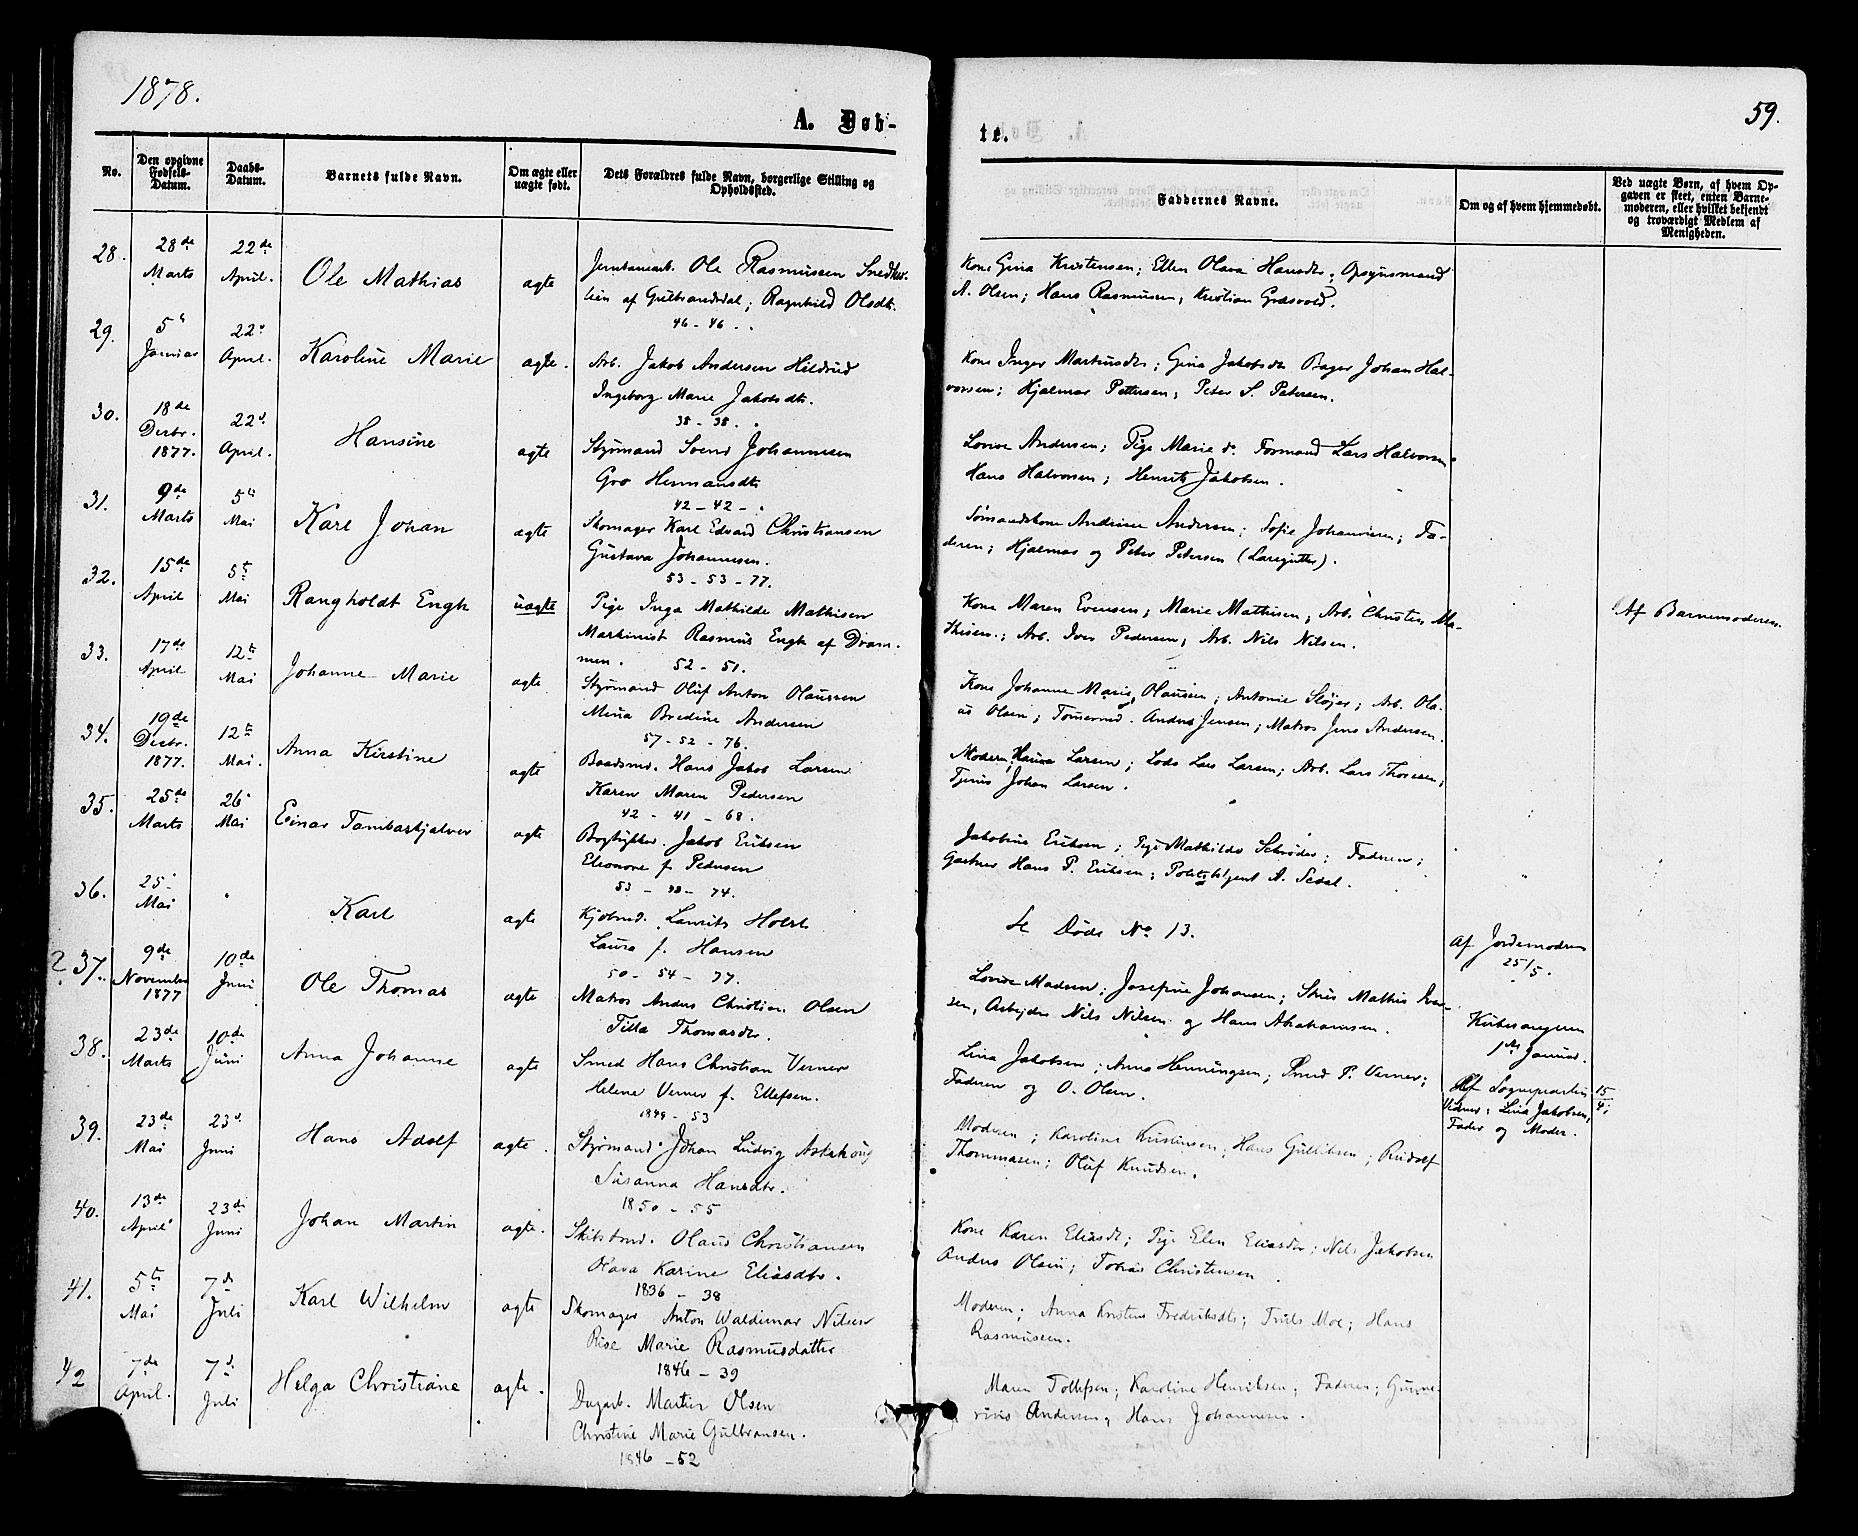 1878.
59.
A. Døb-
te.
No.
Den opgivne Fødsels-Datum.
Daabs-Datum.
Barnets fulde Navn.
Om ægte eller uægte født.
Dets Forældres fulde Navn, borgerlige Stilling og Opholdssted.
Faddernes Navne.
Om og af hvem hjemmedøbt.
Ved uægte Børn, af hvem Op-
gaven er skeet, enten Barne-
moderen, eller hvilket bekjendt
og troværdigt Medlem af
Menigheden.
28. 28de Marts 22de April. Ole Mathias ægte
Ole Rasmussen
af Gulbrandsdal; Ragnhild Olsdt.
46 - 46 -
Kone Gina Kristensen; Ellen Olava Hansdtr; Opsynsmand
A. Olsen; Hans Rasmussen; Kristian Græsvold.
29. 5te Januar 22de April. Karoline Marie ægte.
Arb. Jakob Andersen Hildrud
Ingeborg Marie Jakobsdtr.
38 - 38 -
Kone Inger Martinsdtr; Gina Jakobsdtr Bager Johan Hal-
vorsen; Hjalmar Pettersen; Peter S. Petersen.
30. 18de Decbr. 1877. 22de April. Hansine ægte
Styrmand Svend Johannesen
Gro Hermansdtr
42 - 42 -
Lovise Andersen; Pige Marie do. Formand Lars Halvorsen
Hans Halvorsen; Henrik Jakobsen.
31. 9de Marts 5te Mai Karl Johan ægte
Skomager Karl Edvard Christiansen
Gustava Johannesen.
53 - 53 - 77.
Sømandskone Andrine Andersen; Sofie Johannesen; Fa-
deren; Hjalmar og Peter Petersen (Læregutter).
32. 15de April 5te Mai Rangholdt Engh uægte
Pige Inga Mathilde Mathisen
Maskinist Rasmus Engh af Dram-
men. 52 - 51.
Kone Maren Evensen; Marie Mathisen; Arb. Christen Ma-
thisen; Arb. Iver Pedersen; Arb. Nils Nilsen.
Af Barnemoderen.
33. 17de April 12te Mai Johanne Marie ægte
Styrmand Oluf Anton Olaussen
Mina Bredine Andersen
57 - 52 - 76.
Kone Johanne Marie Olaussen; Antonie Sløjer; Arb. Ola-
us Olsen; Tømermd. Anders Jensen; Matros Jens Andersen.
34. 19de Decbr. 1877. 12te Mai. Anna Kirstine ægte
Baadsmd. Hans Jakob Larsen
Karen Maren Pedersen
42 - 41 - 68.
Moderen; Larsen; Lods Lars Larsen; Arb. Lars Thoresen;
Johan Larsen.
35. 25de Marts 26 Mai Einar Tambaskjælver ægte
Bogtrykker. Jakob Eriksen
Eleonore f. Pedersen
53 - - 74.
Jakobine Eriksen; Pige Mathilde Schrøder; Faderen;
Gartner Hans P. Eriksen; Politibtjent A.
36. 25 Mai Karl ægte
Kjøbmd. Laurits Holst
Laura f. Hansen
50 - 54 - 77.
Se Døde No 13.
Af Jordemoderen
25/5.
? 37. 9de November 1877 10de Juni Ole Thomas ægte
Matros Anders Christian Olsen
Thomasdtr.
Lovise Madsen; Josefine Johansen; Mathis
sen, Arbejder Nils Nilsen og Hans Abrahamsen.
Kirkesangeren
1ste Januar.
38. 23de Marts 10de Juni Anna Johanne ægte
Smed Hans Christian Verner
Helene Verner f. Ellefsen.
1849 - 53
Lina Jakobsen; Anna Henningsen; Smed P. Verner;
Faderen og O. Olsen.
Af Sognepræsten 15/4;
Vidner: Lina Jakobsen,
Fader og Moder.
39. 23de Mai 23de Juni Hans Adolf ægte.
Styrmand Johan Ludvig
Susanna Hansdtr.
1850 - 55
Moderen; Karoline Kristensen; Hans Gulliksen; Rudolf
Thommasen; Oluf Knudsen.
40. 13de April 23de Juni Johan Martin ægte.
Skibstmd. Olaus Christiansen
Olava Karine Eliasdtr.
1836 - 38
Kone Karen Eliasdt; Pige Elen Eliasdtr; Nils Jakobsen
Anders Olsen; Tobias Christensen.
41. 5te Mai 7de Juli Karl Wilhelm ægte
Skomager Anton Waldemar Nilsen
Marie Rasmusdatter
1846 - 39
Moderen; Anna Kristine Fredriksdtr; Truls Moe; Hans
Rasmussen.
42 7de April. 7de Juli Helga Christiane ægte.
Dagarb. Martin Olsen
Christine Marie Gulbransen.
1846 - 52
Maren Tollefsen; Karoline Henriksen; Faderen; Gunne-
rius Andersen; Hans Johannesen.